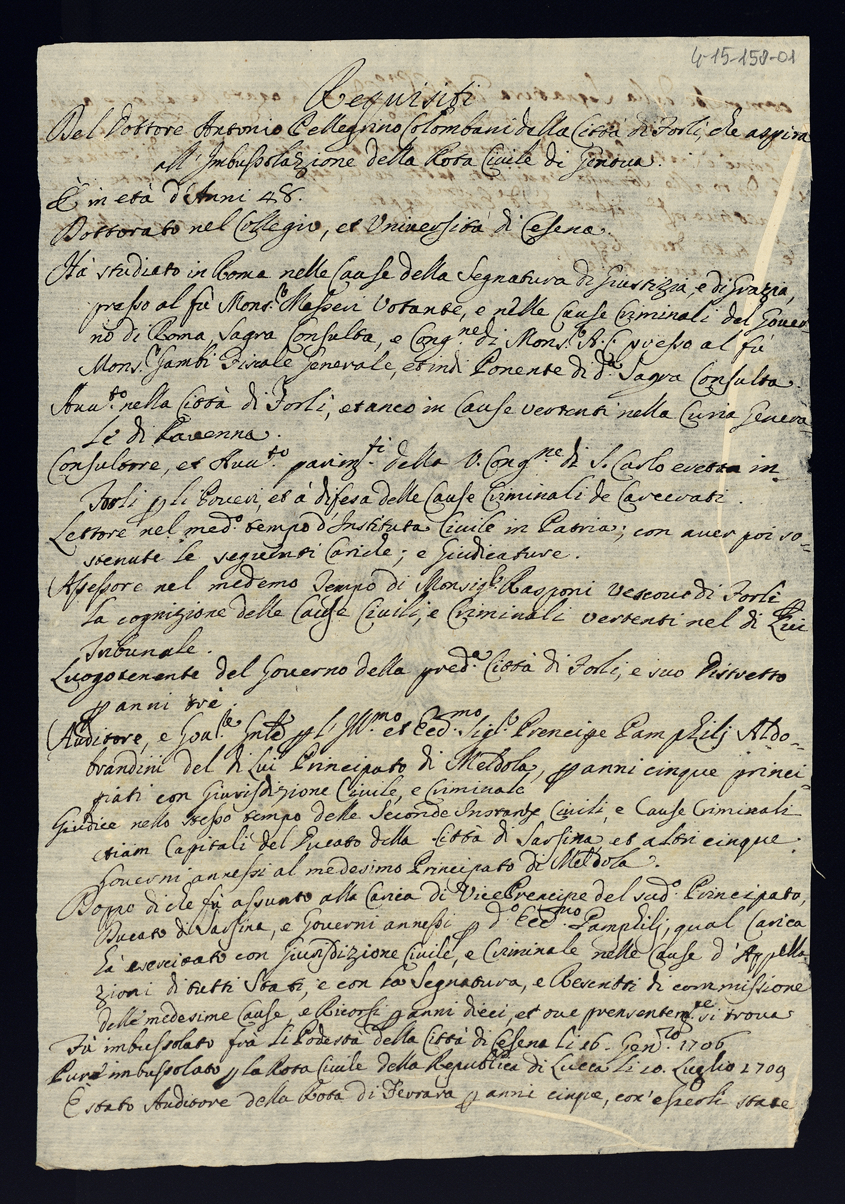 4-15-158-01
Requisiti
Del Dottore Antonio Pellegrino Colombani della Città di Forlì, che aspira
all'Imbussolazione della Rota Civile di Genova.
È in età d'Anni 48.
Dottorato nel Collegio, et Università di Cesena.
Hà studiato in Roma nelle Cause della Segnatura di Giustizia, e di Grazia,
presso al fù Mons.r Masseri Votante, e nelle Cause Criminali del Gover-
no di Roma, Sagra Consulta, e Cong.ne di Mons.r A. C. presso al fù
Mons.r Zambi Fiscale Generale, et indi Ponente di d.a Sagra Consulta.
Avv.to nella Città di Forlì, et anco in Cause vertenti nella Curia Genera-
le di Ravenna.
Consultore, et Avv.to parim.ti della V. Cong.ne di S. Carlo eretta in
Forlì p li Poveri, et à difesa delle Cause Criminali de Carcerati.
Lettore nel med.o tempo d'Instituta Civile in Patria; con aver poi so-
stenute le seguenti Cariche; e Giudicature.
Assessore nel medemo Tempo di Monsig.r Rasponi Vescovo di Forlì p
la cognizione delle Cause Civili, e Criminali vertenti nel di Lui
Tribunale.
Luogotenente del Governo della pred.a Città di Forlì, e suo Distretto
p anni trè.
Auditore, e Gov.re Gnle p l'Ill.mo et Ecc.mo Sig.r Prencipe Pamphilj Aldo-
brandini del di Lui Principato di Meldola, p anni cinque princi-
piati con Giurisdizione Civile, e Criminale
Giudice nello stesso tempo delle Seconde Instanze Civili, e Cause Criminali
etiam Capitali del Ducato della Città di Sarsina, et altri cinque
Governi annessi al medesimo Principato di Meldola.
Doppo di che fù assunto alla Carica di VicePrencipe del sud.o Principato,
Ducato di Sarsina, e Governi annessi p d.o Ecc.mo Pamphilj, qual Carica
hà esercitato con Giurisdizione Civile, e Criminale nelle Cause d'Appella-
zioni di tutti Stati, e con la Segnatura, e Rescritti di commissione
delle medesime Cause, e Ricorsi p anni dieci, et ove prensentem.te si trova
Fù imbussolato frà li Podestà della Città di Cesena li 16. Gen.ro 1706
Pure imbussolato p la Rota Civile della Republica di Lucca li 10. Luglio 1709
È stato Auditore della Rota di Ferrara p anni cinque, con' esserli state